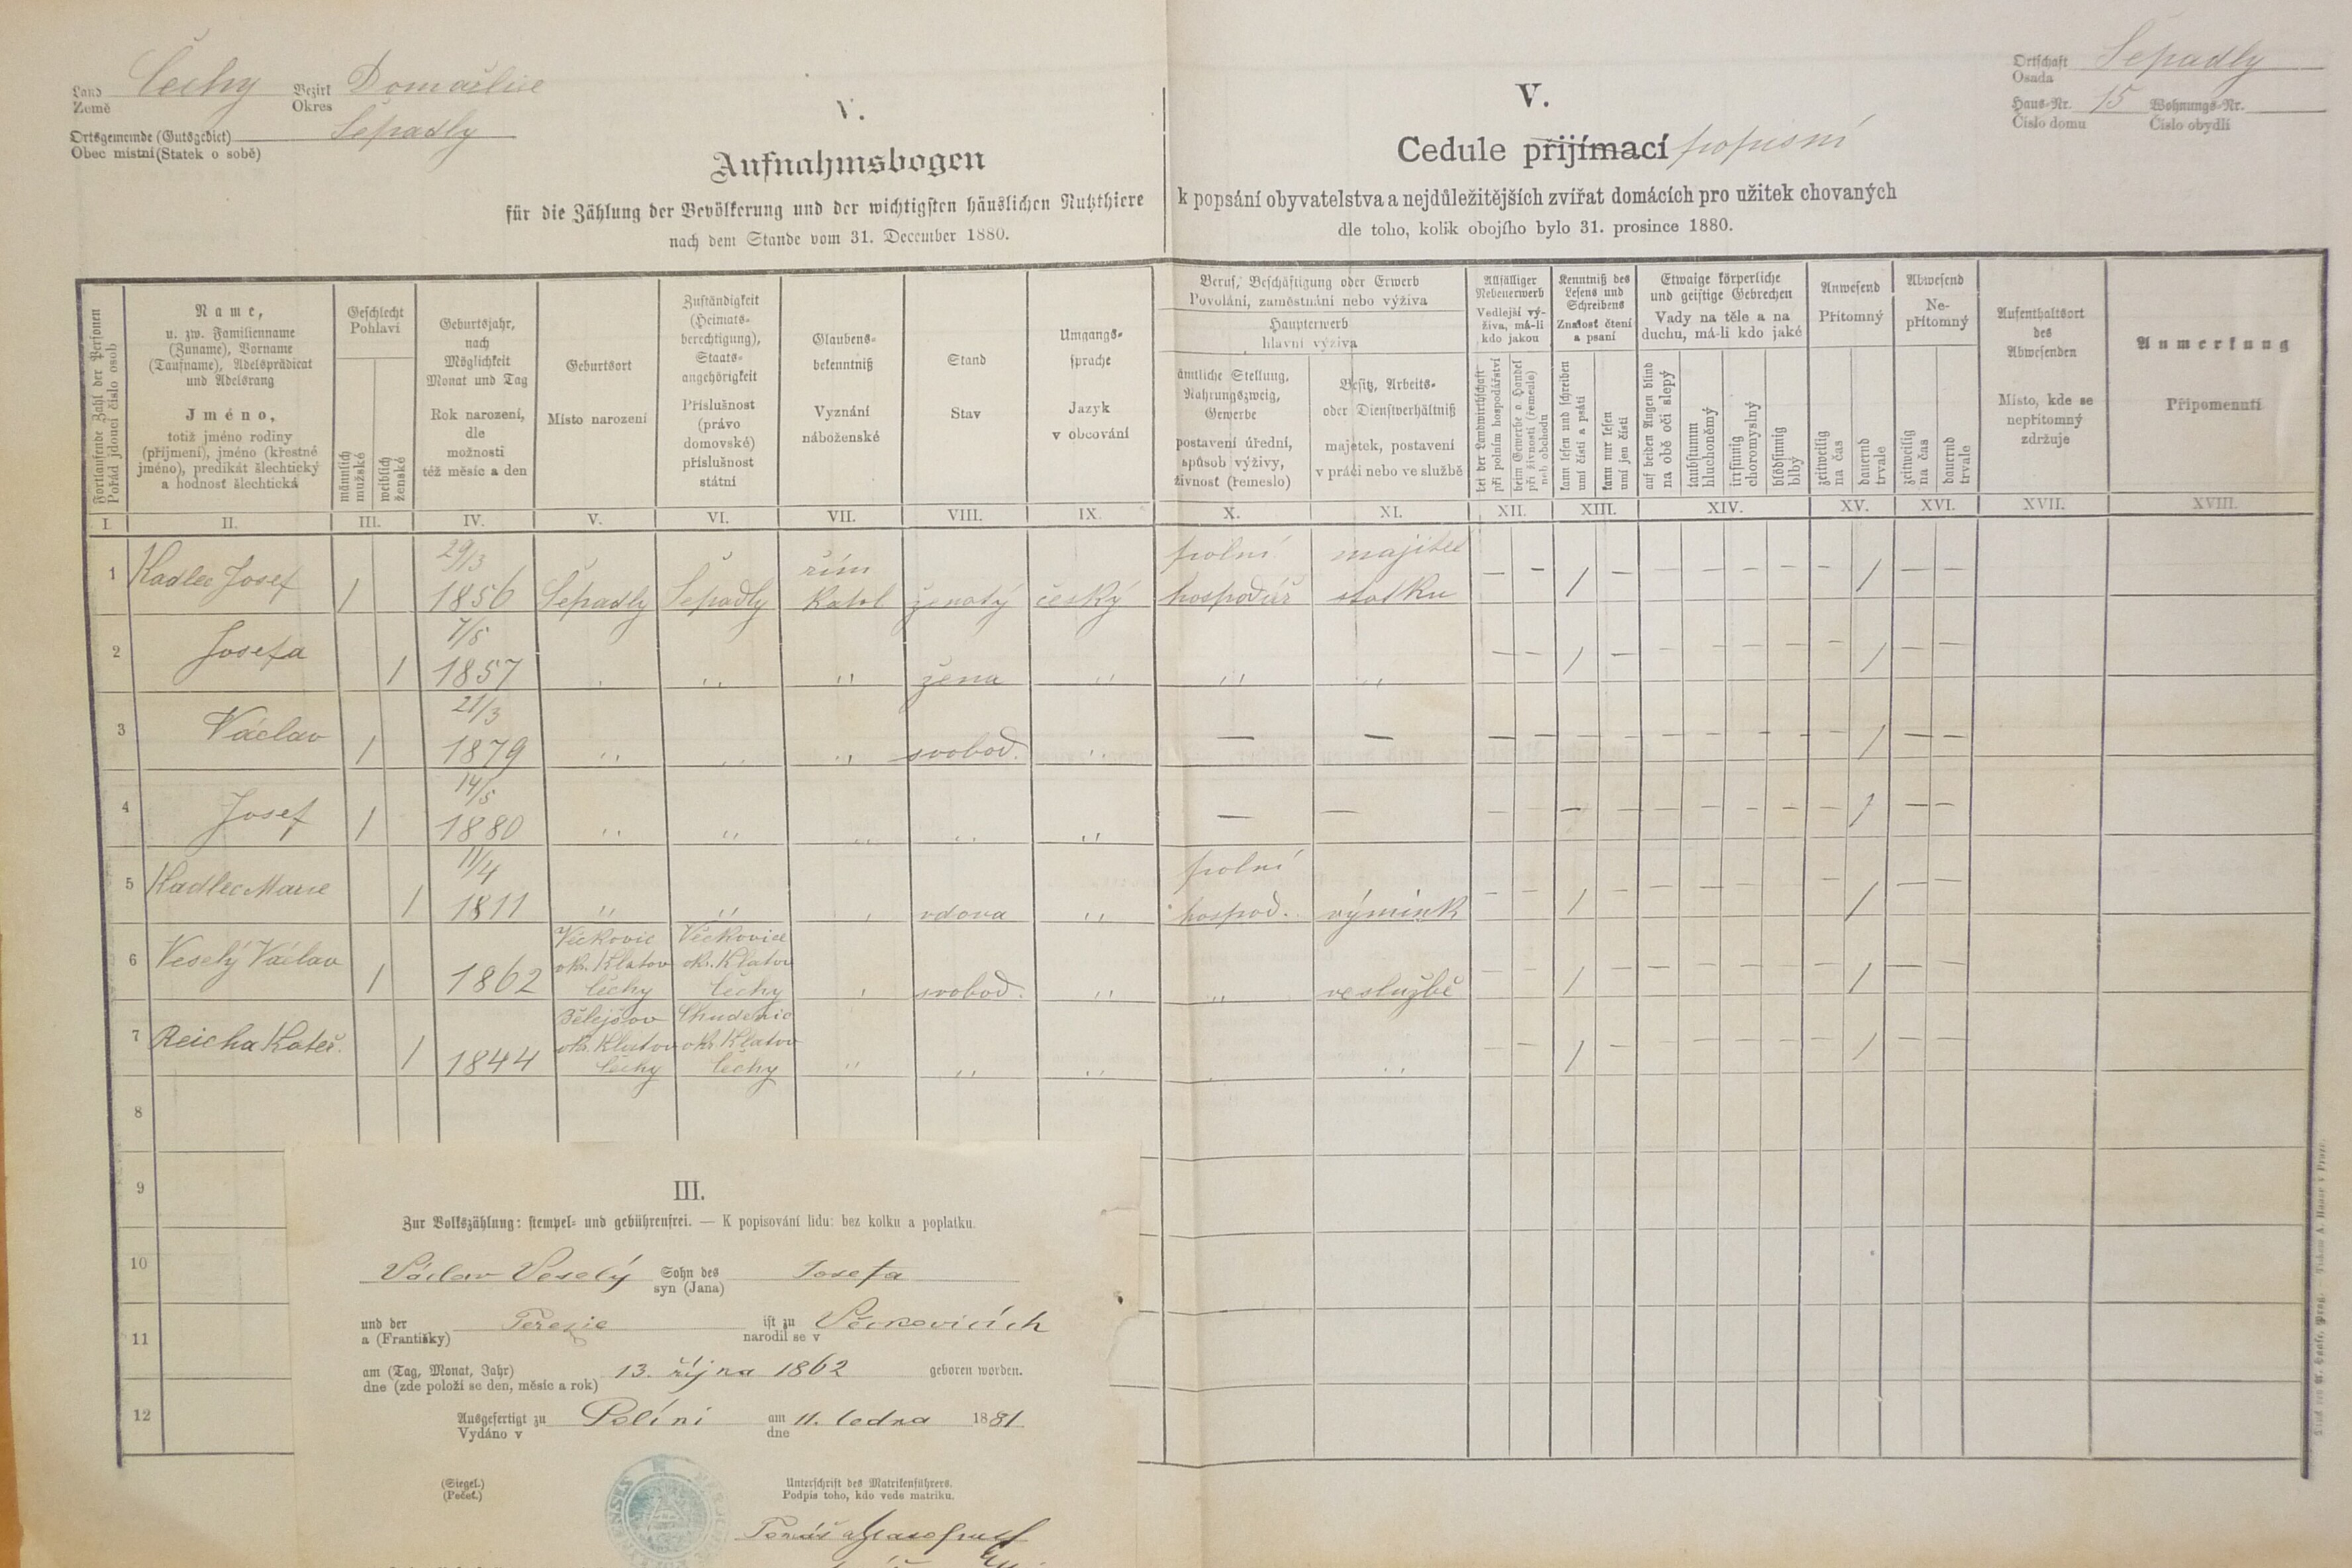 Land Čechy Bezirk Domažlice
Země Okres
Ortsgemeinde (Gutsgebiet) Šepadly
Obec místní (Statek o sobě)
V.
Aufnahmsbogen
für die Zählung der Bevölkerung und der wichtigsten häuslichen Nutzthiere
nach dem Stande vom 31. December 1880.
V.
Cedule přijímací popisní
k popsání obyvatelstva a nejdůležitějších zvířat domácích pro užitek chovaných
dle toho, kolik obojího bylo 31. prosince 1880.
Ortschaft Šepadly
Osada
Haus-Nr. 15 Wohnungs-Nr.
Číslo domu Číslo obydlí
Fortlaufende Zahl der Personen
Pořád jdoucí číslo osob
Name,
u. zw. Familienname
(Zuname), Vorname
(Taufname), Adelsprädicat
und Adelsrang
Jméno,
totiž jméno rodiny
(příjmení), jméno (křestné
jméno), predikát šlechtický
a hodnost šlechtická
Geschlecht
Pohlaví
männlich
mužské
weiblich
ženské
Geburtsjahr,
nach
Möglichkeit
Monat und Tag
Rok narození,
dle
možnosti
též měsíc a den
Geburtsort
Místo narození
Zuständigkeit
(Heimats-
berechtigung),
Staats-
angehörigkeit
Příslušnost
(právo
domovské)
příslušnost
státní
Glaubens-
bekenntniß
Vyznání
náboženské
Stand
Stav
Umgangs-
sprache
Jazyk
v obcování
Beruf, Beschäftigung oder Erwerb
Povolání, zaměstnání nebo výživa
Haupterwerb
hlavní výživa
ämtliche Stellung,
Nahrungszweig,
Gewerbe
postavení úřední,
spůsob výživy,
živnost (řemeslo)
Besitz, Arbeits-
oder Dienstverhältniß
majetek, postavení
v práci nebo ve službě
Allfälliger
Nebenerwerb
Vedlejší vý-
živa, má-li
kdo jakou
bei der Landwirthschaft
při polním hospodářství
beim Gewerbe o. Handel
při živnosti (řemesle)
neb obchodu
Kenntniß des
Lesens und
Schreibens
Znalost čtení
a psaní
kann lesen und schreiben
umí čísti a psáti
kann nur lesen
umí jen čísti
Etwaige körperliche
und geistige Gebrechen
Vady na těle a na
duchu, má-li kdo jaké
auf beiden Augen blind
na obě oči slepý
taubstumm
hluchoněmý
irrsinnig
choromyslný
blödsinnig
blbý
Anwesend
Přítomný
zeitweilig
na čas
dauernd
trvale
Abwesend
Ne-
přítomný
zeitweilig
na čas
dauernd
trvale
Aufenthaltsort
des
Abwesenden
Místo, kde se
nepřítomný
zdržuje
Anmerkung
Připomenutí
I. II. III. IV. V. VI. VII. VIII. IX. X. XI. XII. XIII. XIV. XV. XVI. XVII. XVIII.
29/3 řím polní majitel
1 Kadlec Josef / 1856 Šepadly Šepadly katol ženatý český hospodář statku — — / — — — — — — / — —
7/5
2 Josefa / 1857 " " " žena " " " — — / — — — — — — / — —
21/3
3 Václav / 1879 " " " svobod. " — — — — — — — — — — — / — —
14/5
4 Josef / 1880 " " " " " — — — — — — — — — — — / — —
11/4 polní
5 Kadlec Marie / 1811 " " " vdova " hospod. výmink — — / — — — — — — / — —
Věckovic Věckovice
okr. Klatov okr. Klatov
6 Veselý Václav / 1862 Čechy Čechy " svobod. " " ve službě — — / — — — — — — / — —
Chudenic
okr. Klatov okr. Klatov
7 Reicha Kateř. / 1844 Čechy Čechy " " " " " — — / — — — — — — / — —
8
9
10
11
12
III.
Zur Volkszählung: stempel- und gebührenfrei. — K popisování lidu: bez kolku a poplatku.
Václav Veselý Sohn des Josefa
syn (Jana)
und der Terezie ist zu Věckovicích
a (Františky) narodil se v
am (Tag, Monat, Jahr) 13. října 1862 geboren worden.
dne (zde položí se den, měsíc a rok)
Ausgefertigt zu Poliní am 11. ledna 1881
Vydáno v dne
(Siegel.)
(Pečeť.)
Unterschrift des Matrikenführers.
Podpis toho, kdo vede matriku.